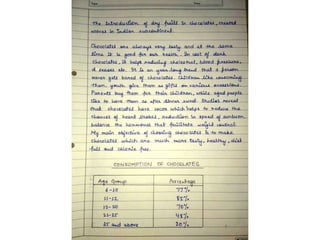 The Introduction of dry fruits in chocolates, created
waves in Indian subcontinent.
Chocolates are always very tasty and at the same
time it is good for our health. In case of dark
Chocolates, it helps reducing cholesterol, blood pressure,
It is an year long trend that a person
never gets bored of chocolates. Children like consuming
them, youth give them as gifts on various occasions.
Parents buy them for their children, while aged people
like to have them as after dinner sweet. Studies reveal
that chocolates have cocoa which helps to reduce the
chances of heart stroke, reduction in speed of
balance the hormones that facilitate weight control.
My main objective of choosing chocolates is to make
chocolates which are much more tasty, healthy, diet
full and calorie free.
CONSUMPTION OF CHOCOLATES
Age Group Percentage
77%
11-12 85%
12-20 70%
21-25 48%
25 and above 20%